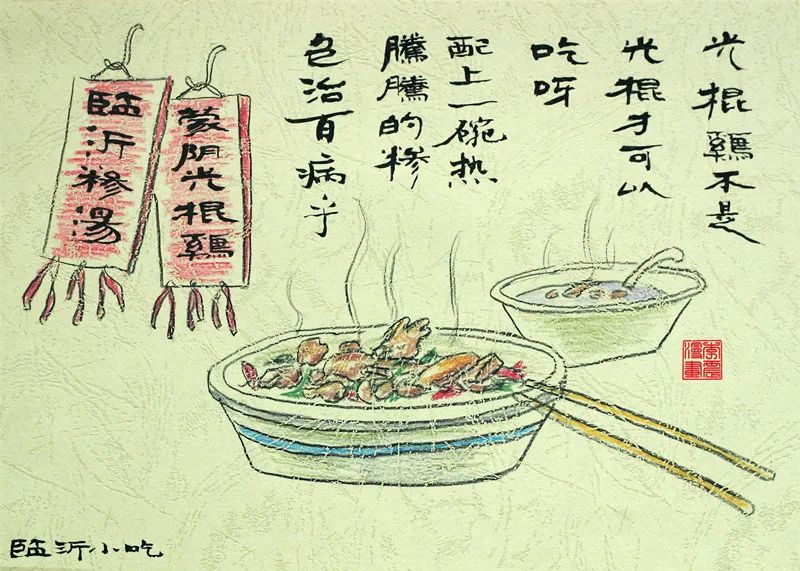 光棍鷄不是
光棍才可以
吃呀
配上一碗热
騰騰的糁
包治百病乎
蒙阴光棍鷄
臨沂糁湯
漫畫
臨沂小吃